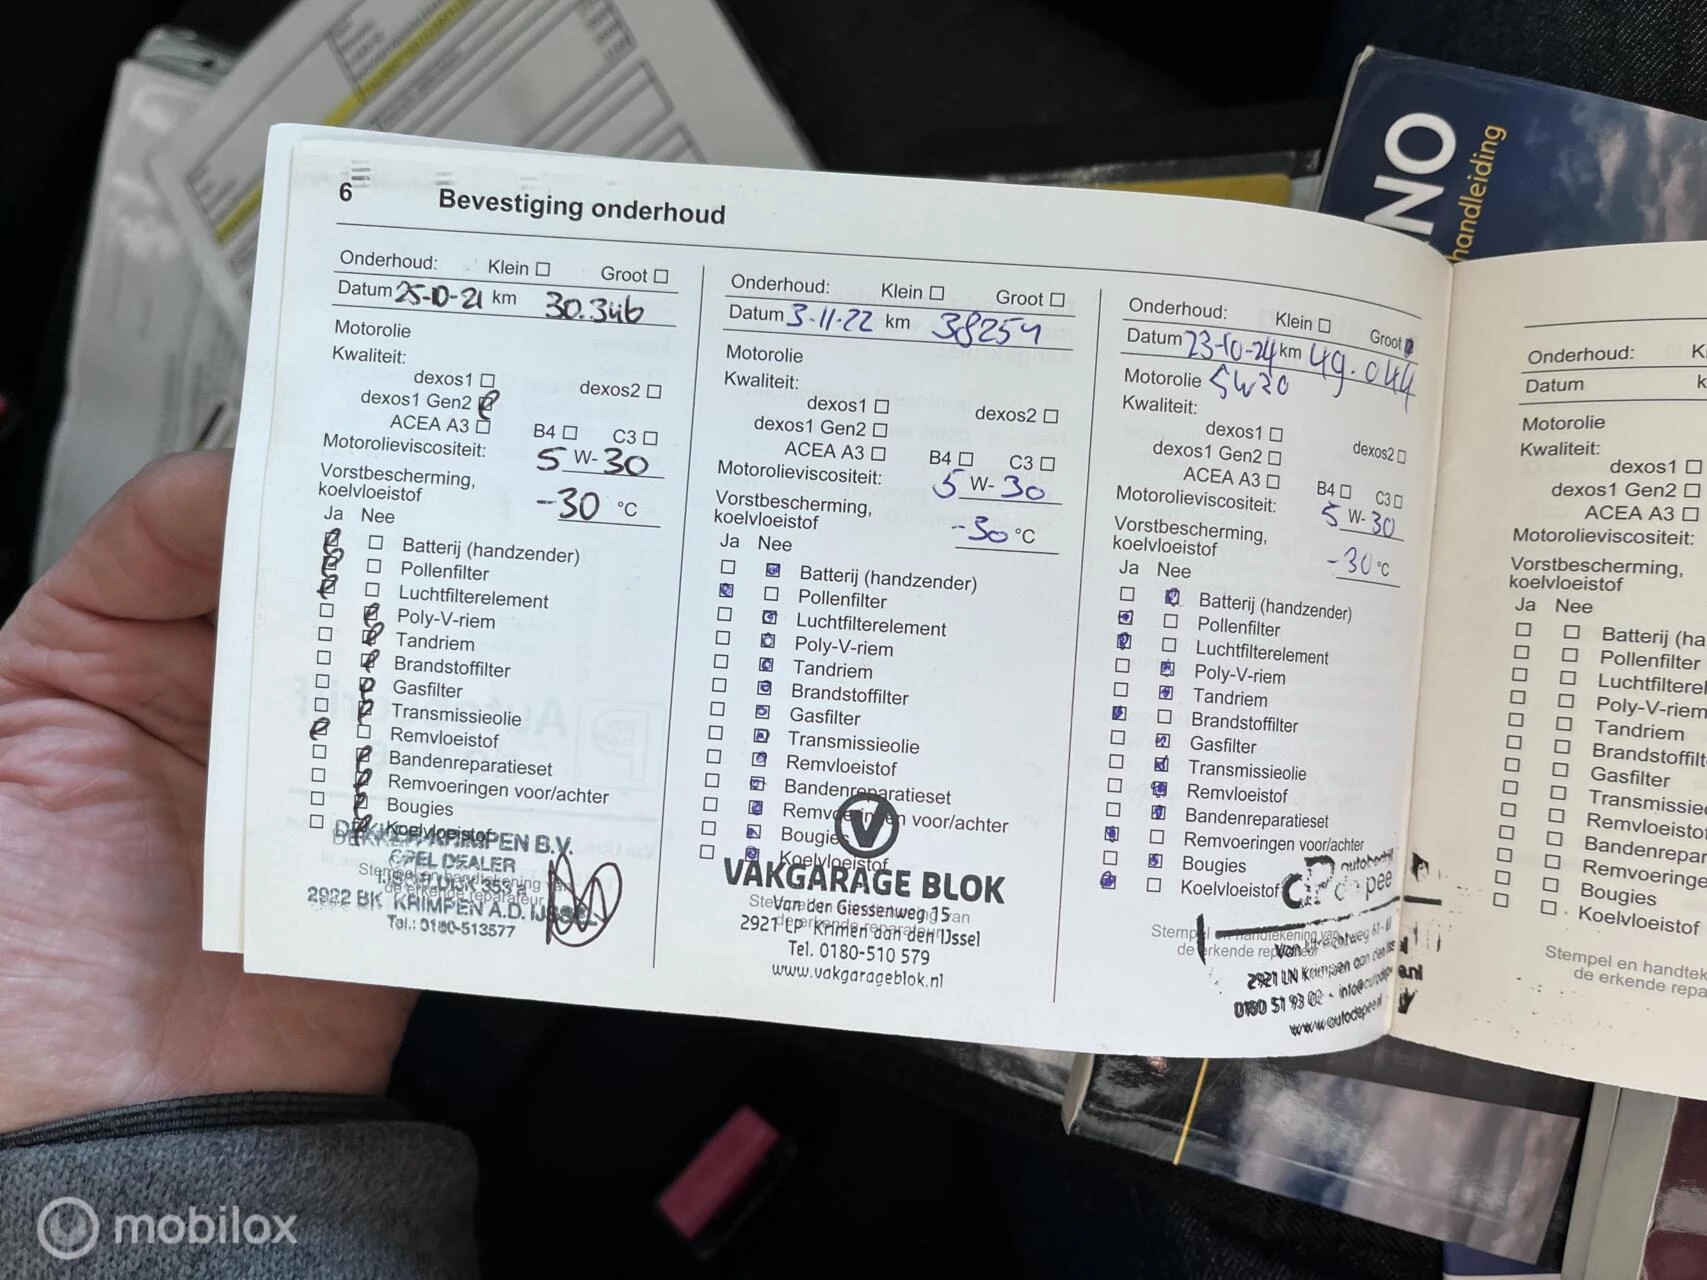 6 Bevestiging onderhoud
Onderhoud: Klein Groot
Datum 25-10-21 km 30.346
Motorolie
Kwaliteit:
dexos1 dexos2
dexos1 Gen2
ACEA A3 B4 C3
Motorolieviscositeit: 5 W- 30
Vorstbescherming,
koelvloeistof -30 °C
Ja Nee
Batterij (handzender)
Pollenfilter
Luchtfilterelement
Poly-V-riem
Tandriem
Brandstoffilter
Gasfilter
Transmissieolie
Remvloeistof
Bandenreparatieset
Remvoeringen voor/achter
Bougies
Koelvloeistof
Stempel en handtekening van
de erkende reparateur
DEKKER KRIMPEN B.V.
OPEL DEALER
2922 BK KRIMPEN A.D. IJSSEL
Tel.: 0180-513577
Onderhoud: Klein Groot
Datum 3-11-22 km 38254
Motorolie
Kwaliteit:
dexos1 dexos2
dexos1 Gen2
ACEA A3 B4 C3
Motorolieviscositeit: 5 W- 30
Vorstbescherming,
koelvloeistof -30 °C
Ja Nee
Batterij (handzender)
Pollenfilter
Luchtfilterelement
Poly-V-riem
Tandriem
Brandstoffilter
Gasfilter
Transmissieolie
Remvloeistof
Bandenreparatieset
Remvoeringen voor/achter
Bougies
Koelvloeistof
V
VAKGARAGE BLOK
Van der Giessenweg 15
2921 LP Krimpen aan den IJssel
Tel. 0180-510 579
www.vakgarageblok.nl
Onderhoud: Klein Groot
Datum 23-10-24 km 49.044
Motorolie 5w30
Kwaliteit:
dexos1 dexos2
dexos1 Gen2
ACEA A3 B4 C3
Motorolieviscositeit: 5 W- 30
Vorstbescherming,
koelvloeistof -30 °C
Ja Nee
Batterij (handzender)
Pollenfilter
Luchtfilterelement
Poly-V-riem
Tandriem
Brandstoffilter
Gasfilter
Transmissieolie
Remvloeistof
Bandenreparatieset
Remvoeringen voor/achter
Bougies
Koelvloeistof
Stempel en handtekening van
de erkende reparateur
autobedrijf
de pee
2921 LN Krimpen aan den
0180 51 93 02
www.autodepee.nl
Onderhoud:
Datum
Motorolie
Kwaliteit:
dexos1
dexos1 Gen2
ACEA A3
Motorolieviscositeit:
Vorstbescherming,
koelvloeistof
Ja Nee
Batterij (ha
Pollenfilter
Luchtfilterel
Poly-V-riem
Tandriem
Brandstoffilt
Gasfilter
Transmissie
Remvloeisto
Bandenrepar
Remvoeringe
Bougies
Koelvloeistof
Stempel en handtek
de erkende repa
NO
handleiding
mobilox